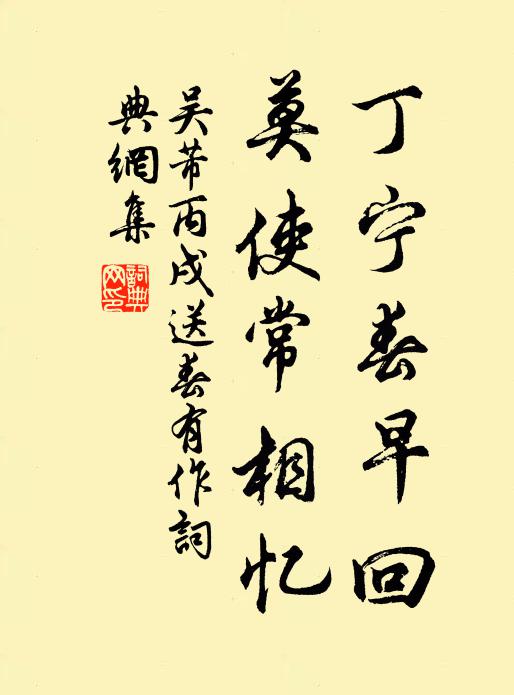 丁宁春早回
莫使常相忆
吴芾丙戌送春有作词
典网集
词典
网印